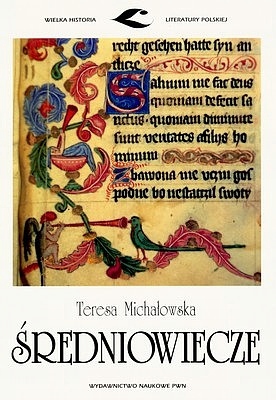 WIELKA HISTORIA
LITERATURY POLSKIEJ
recht gesehen hatte syn an
Saluum me fac deus
quoniam defecit sa
nctus · quoniam diminute
sunt veritates a filijs ho
minum
Zbawona me vczin gos
podne bo nestatczil swøty
Teresa Michałowska
ŚREDNIOWIECZE
WYDAWNICTWO NAUKOWE PWN